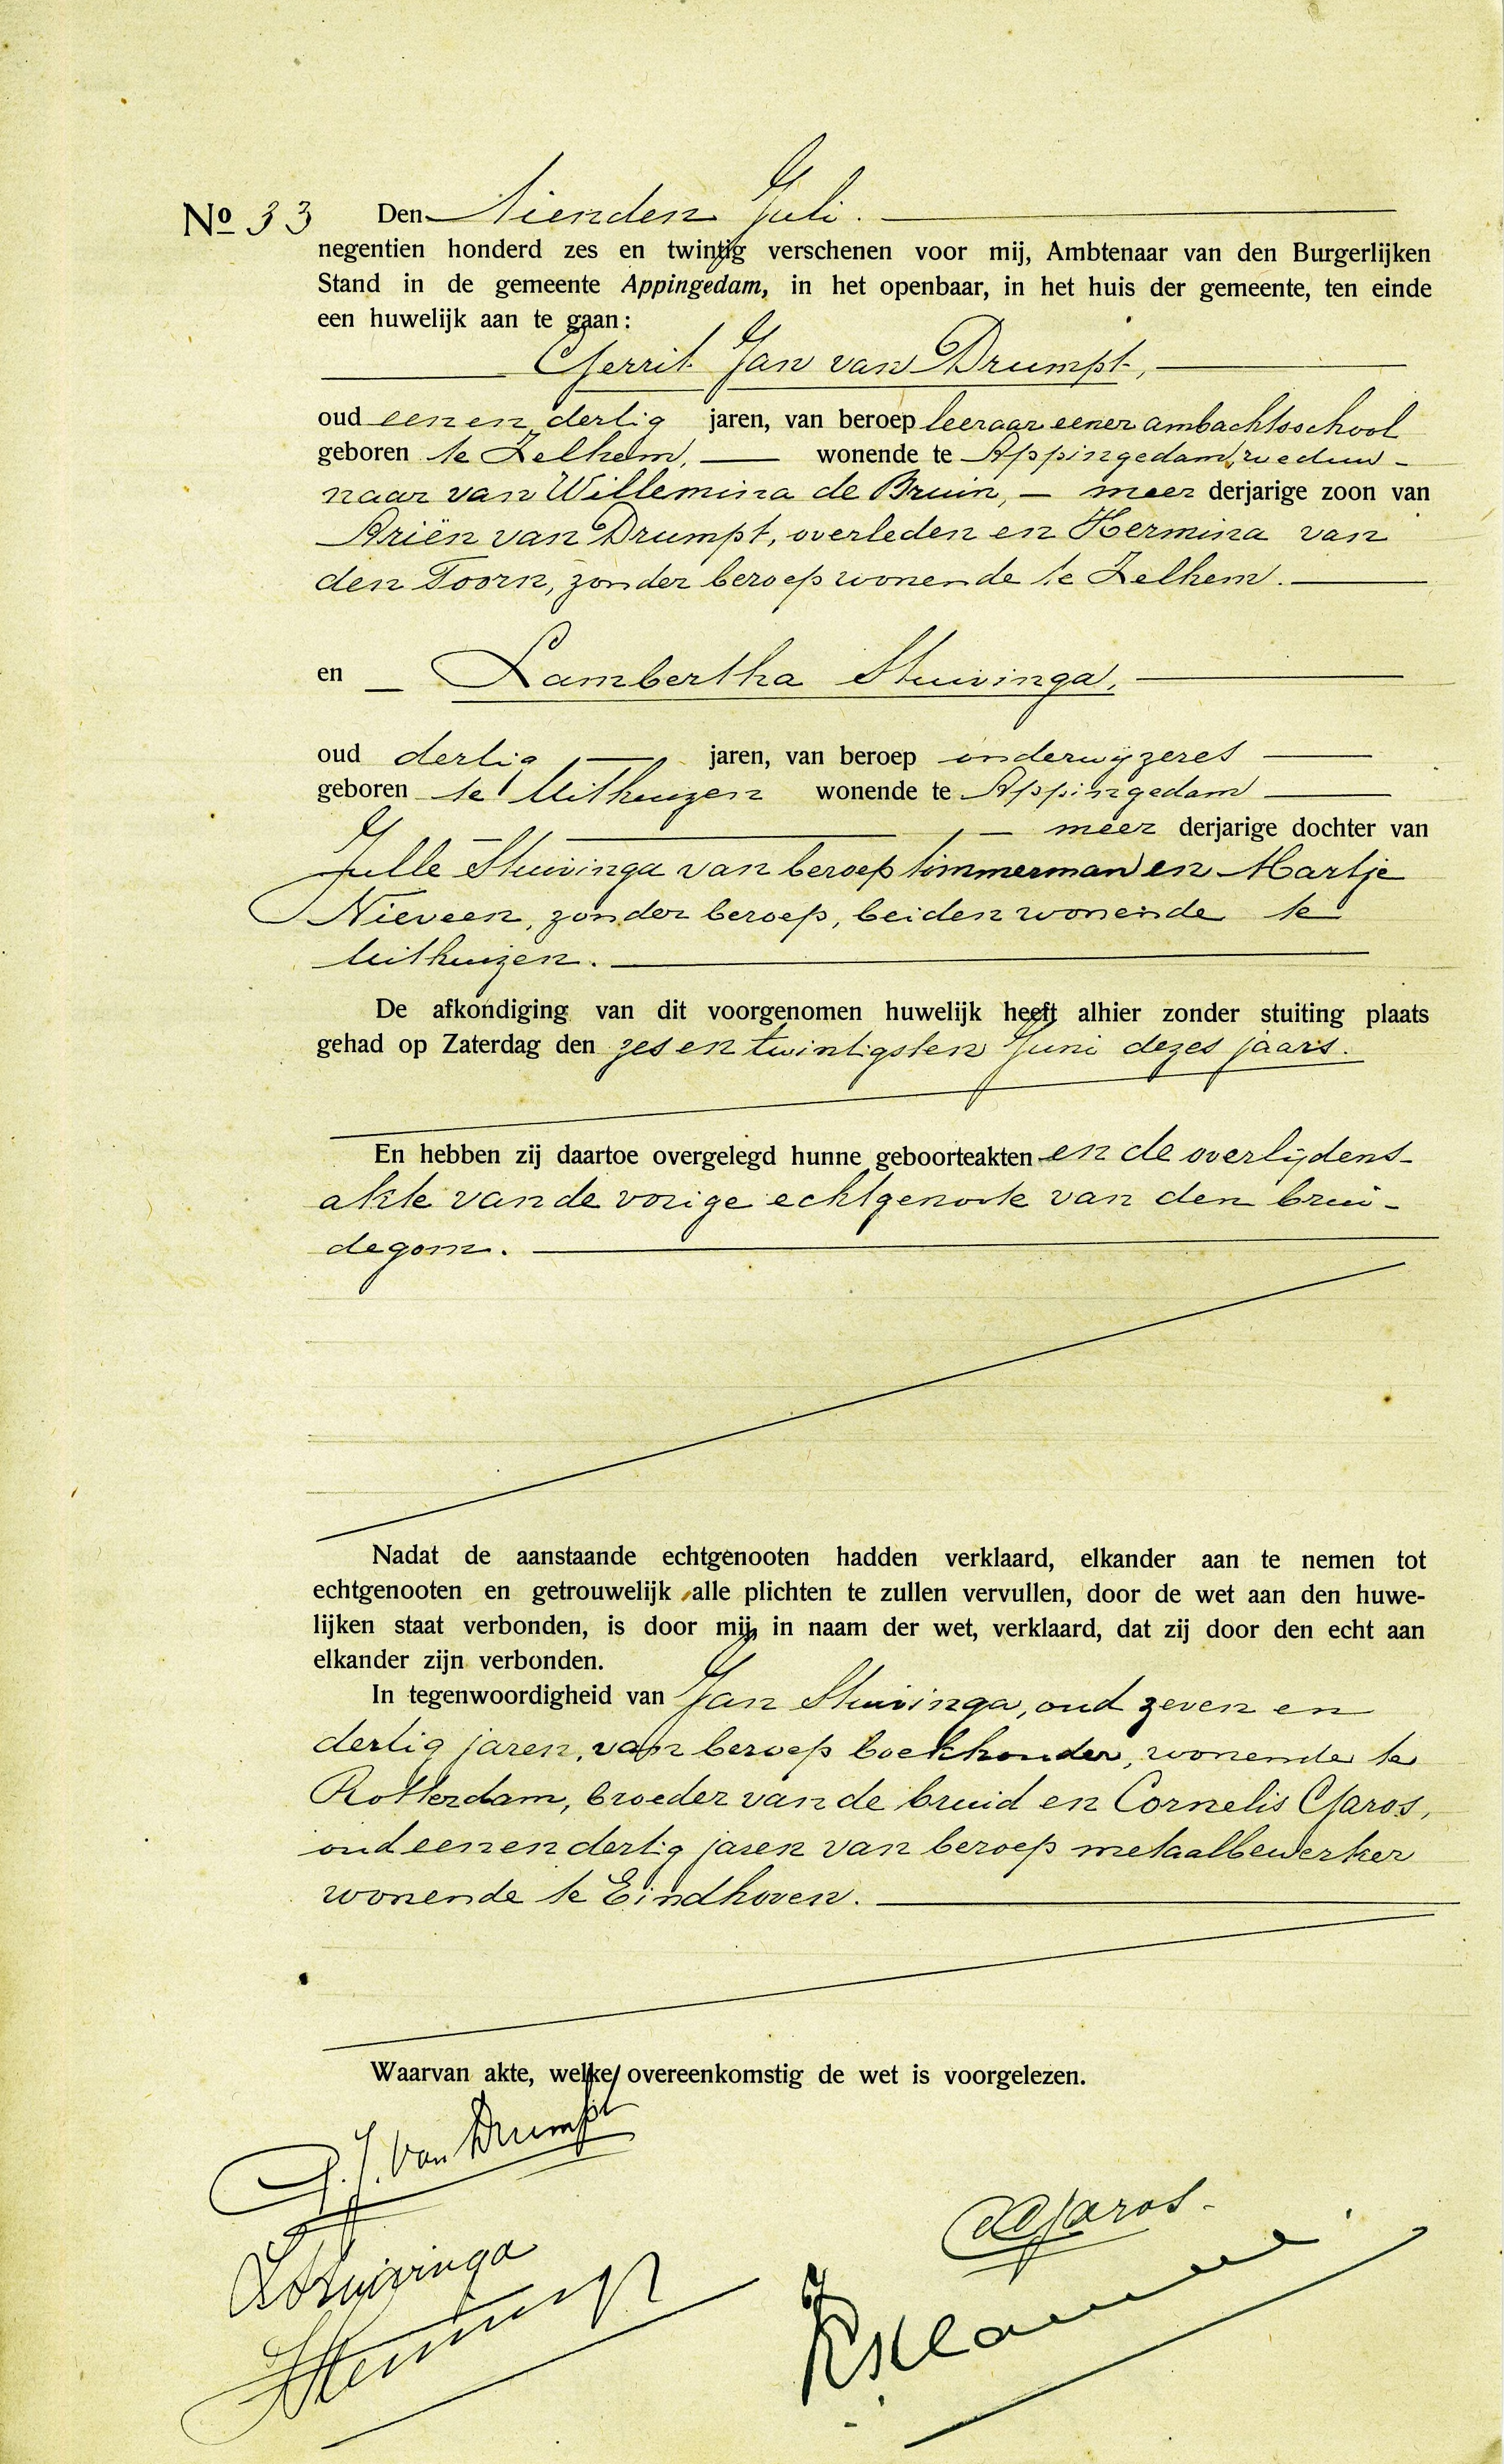 No 33 Den Tienden Juli.
negentien honderd zes en twintig verschenen voor mij, Ambtenaar van den Burgerlijken
Stand in de gemeente Appingedam, in het openbaar, in het huis der gemeente, ten einde
een huwelijk aan te gaan:
Gerrit Jan van Drumpt,
oud een en dertig jaren, van beroep leeraar eener ambachtsschool
geboren te Zelhem, wonende te Appingedam, weduw-
naar van Willemina de Bruin, — meer derjarige zoon van
Ariën van Drumpt, overleden en Hermina van
den Toorn, zonder beroep wonende te Zelhem.
en Lambertha Stuivinga,
oud dertig jaren, van beroep onderwijzeres
geboren te Uithuizen wonende te Appingedam
, — meer derjarige dochter van
Jelle Stuivinga van beroep timmerman en Martje
Nieveen, zonder beroep, beiden wonende te
Uithuizen.
De afkondiging van dit voorgenomen huwelijk heeft alhier zonder stuiting plaats
gehad op Zaterdag den zes en twintigsten Juni dezes jaars.
En hebben zij daartoe overgelegd hunne geboorteakten en de overlijdens-
akte van de vorige echtgenoote van den brui-
degom.
Nadat de aanstaande echtgenooten hadden verklaard, elkander aan te nemen tot
echtgenooten en getrouwelijk alle plichten te zullen vervullen, door de wet aan den huwe-
lijken staat verbonden, is door mij, in naam der wet, verklaard, dat zij door den echt aan
elkander zijn verbonden.
In tegenwoordigheid van Jan Stuivinga, oud zeven en
dertig jaren, van beroep boekhouder, wonende te
Rotterdam, broeder van de bruid en Cornelis Garos,
oud een en dertig jaren van beroep metaalbewerker
wonende te Eindhoven.
Waarvan akte, welke overeenkomstig de wet is voorgelezen.
G. J. van Drumpt
C Garos.
L Stuivinga